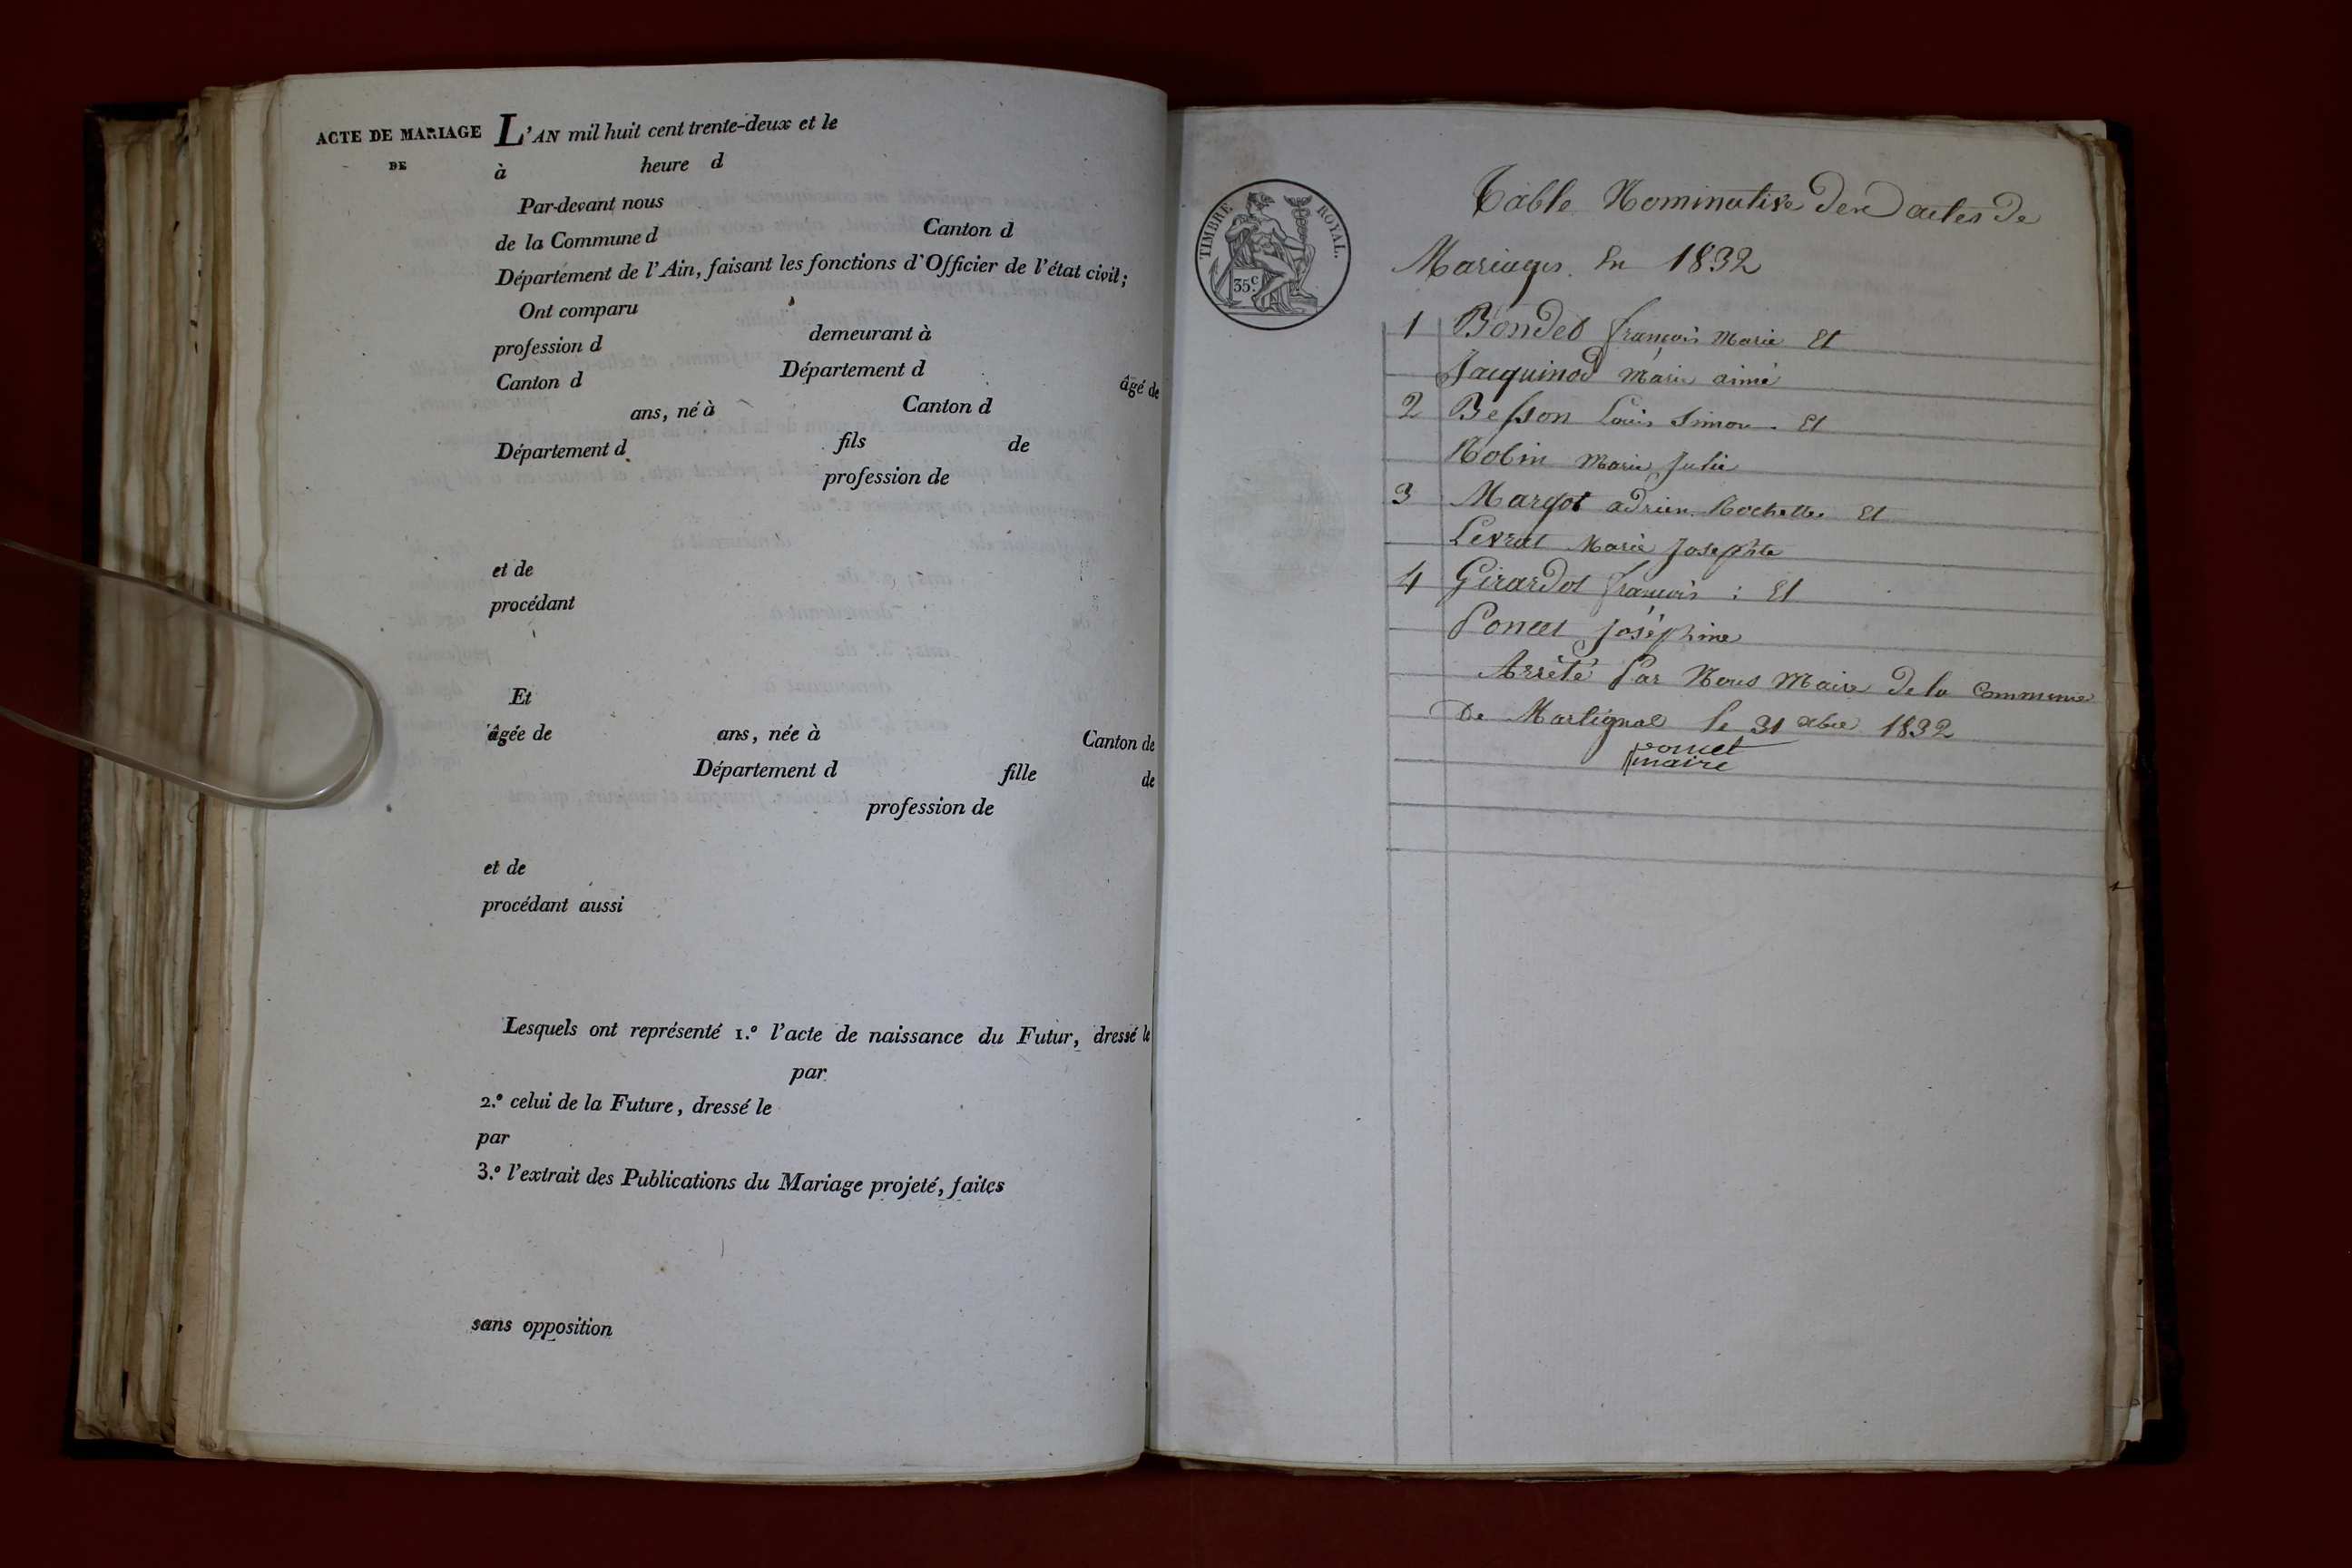 ACTE DE MARIAGE
DE
L'AN mil huit cent trente-deux et le
à heure d
Par-devant nous
de la Commune d Canton d
Département de l'Ain, faisant les fonctions d'Officier de l'état civil;
Ont comparu
profession d demeurant à
Canton d Département d âgé de
ans, né à Canton d
Département d fils de
profession de
et de
procédant
Et
âgée de ans, née à Canton de
Département d fille de
profession de
et de
procédant aussi
Lesquels ont représenté 1.º l'acte de naissance du Futur, dressé le
par
2.º celui de la Future, dressé le
par
3.º l'extrait des Publications du Mariage projeté, faites
sans opposition
TIMBRE ROYAL.
35 c.
Table Nominative des actes de
Mariages En 1832
1 Bondet françois Marie Et
Jacquinod Marie aimé
2 Besson Louis Simon Et
Robin Marie Julie
3 Margot adrien Rochette Et
Levrat Marie Josephte
4 Girardot françois : Et
Poncet Joséphine
Arrêté Par Nous Maire de la Commune
De Martignat le 31 xbre 1832
poncet
maire